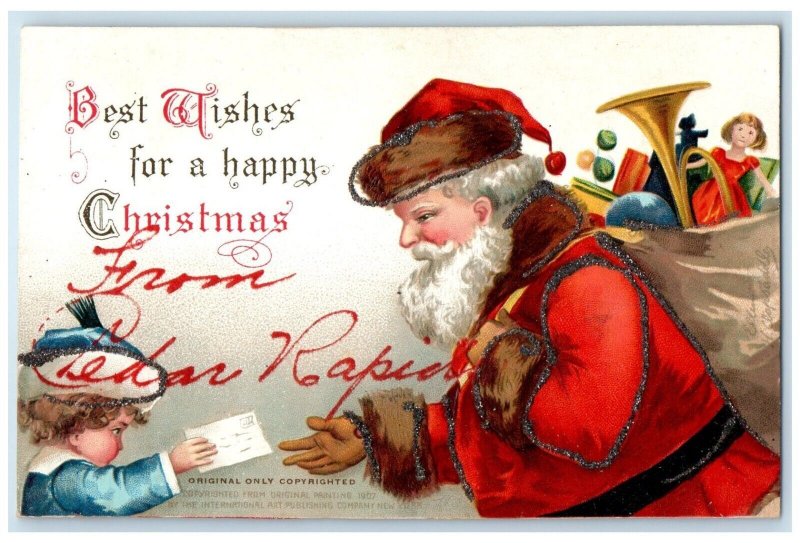 Best Wishes
for a happy
Christmas
From
Cedar Rapids
ORIGINAL ONLY COPYRIGHTED
COPYRIGHTED FROM ORIGINAL PAINTING 1907
BY THE INTERNATIONAL ART PUBLISHING COMPANY NEW YORK